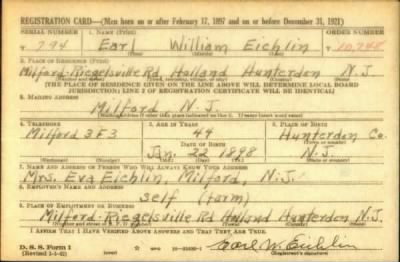 REGISTRATION CARD—(Men born on or after February 17, 1897 and on or before December 31, 1921)
SERIAL NUMBER 1. NAME (Print) ORDER NUMBER
T 794 Earl William Eichlin T 10,748
(First) (Middle) (Last)
2. PLACE OF RESIDENCE (Print)
Milford-Riegelsville Rd Holland Hunterdon N.J.
[THE PLACE OF RESIDENCE GIVEN ON THE LINE ABOVE WILL DETERMINE LOCAL BOARD
JURISDICTION; LINE 2 OF REGISTRATION CERTIFICATE WILL BE IDENTICAL]
3. MAILING ADDRESS
Milford N.J.
[Mailing address if other than place indicated on line 2. If same insert word same]
4. TELEPHONE 5. AGE IN YEARS 6. PLACE OF BIRTH
Milford 3F3 44 Hunterdon Co.
DATE OF BIRTH
Jan. 22 1898 N.J.
7. NAME AND ADDRESS OF PERSON WHO WILL ALWAYS KNOW YOUR ADDRESS
Mrs. Eva Eichlin, Milford, N.J.
8. EMPLOYER'S NAME AND ADDRESS
Self (farm)
9. PLACE OF EMPLOYMENT OR BUSINESS
Milford-Riegelsville Rd Holland Hunterdon N.J.
I AFFIRM THAT I HAVE VERIFIED ABOVE ANSWERS AND THAT THEY ARE TRUE.
D. S. S. Form 1
(Revised 1-1-42) Earl W. Eichlin